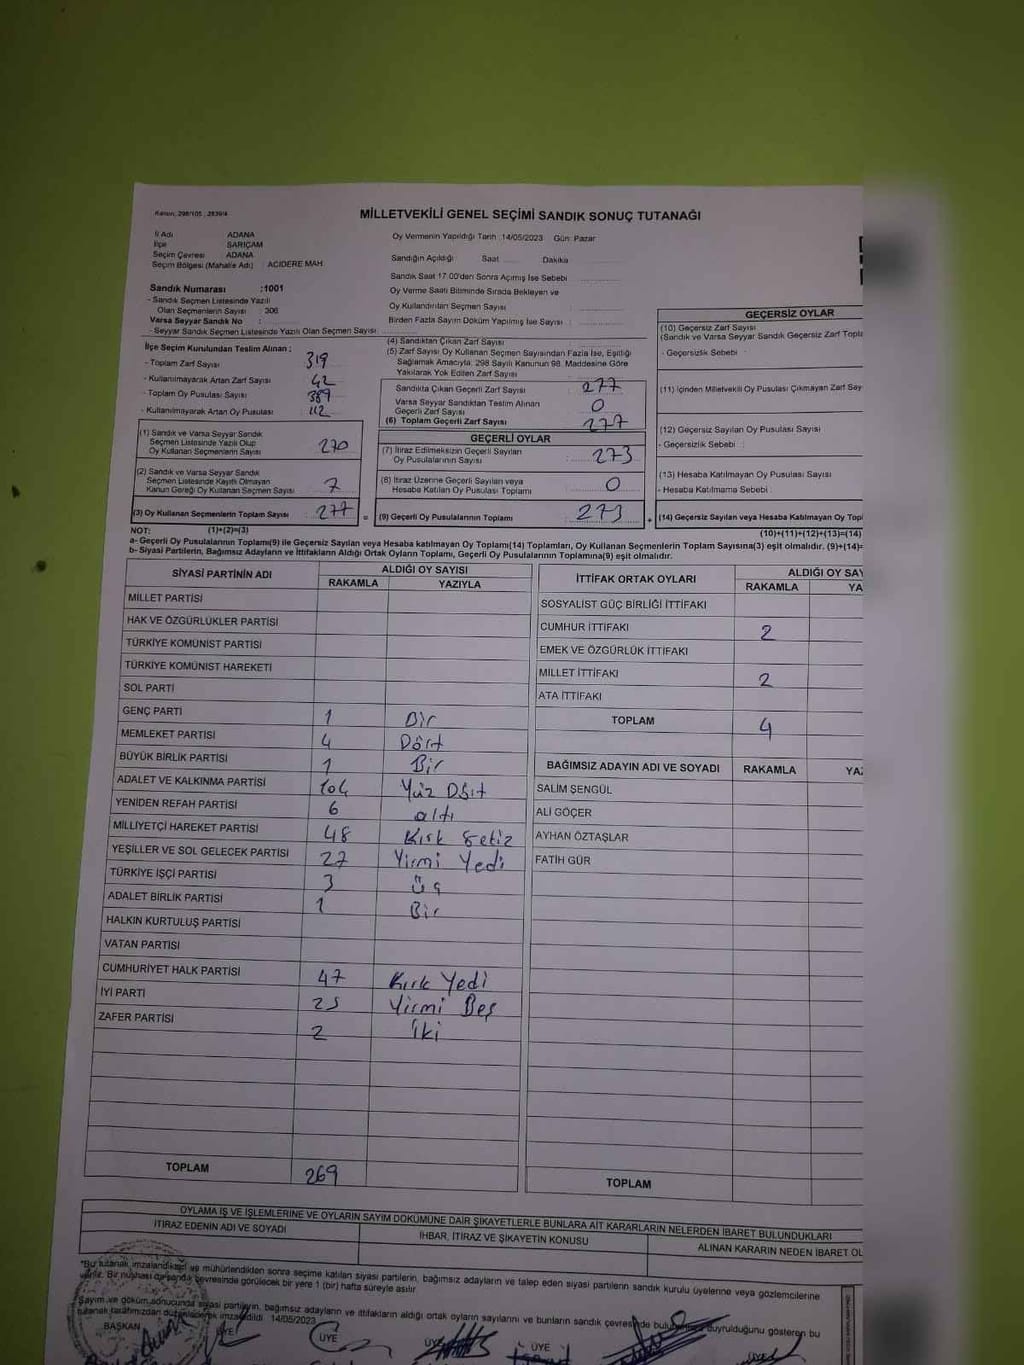 Kanun: 298/105 ; 2839/4
MİLLETVEKİLİ GENEL SEÇİMİ SANDIK SONUÇ TUTANAĞI
İl Adı ADANA
İlçe SARIÇAM
Seçim Çevresi ADANA
Seçim Bölgesi (Mahalle Adı) : ACIDERE MAH.
Sandık Numarası :1001
- Sandık Seçmen Listesinde Yazılı
Olan Seçmenlerin Sayısı : 306
Varsa Seyyar Sandık No :
- Seyyar Sandık Seçmen Listesinde Yazılı Olan Seçmen Sayısı
Oy Vermenin Yapıldığı Tarih :14/05/2023 Gün: Pazar
Sandığın Açıldığı Saat Dakika
Sandık Saat 17:00'den Sonra Açılmış İse Sebebi
Oy Verme Saati Bitiminde Sırada Bekleyen ve
Oy Kullandırılan Seçmen Sayısı :
Birden Fazla Sayım Döküm Yapılmış İse Sayısı :
İlçe Seçim Kurulundan Teslim Alınan ;
- Toplam Zarf Sayısı 319
- Kullanılmayarak Artan Zarf Sayısı 42
- Toplam Oy Pusulası Sayısı 389
- Kullanılmayarak Artan Oy Pusulası 112
(1) Sandık ve Varsa Seyyar Sandık
Seçmen Listesinde Yazılı Olup
Oy Kullanan Seçmenlerin Sayısı 270
(2) Sandık ve Varsa Seyyar Sandık
Seçmen Listesinde Kayıtlı Olmayan
Kanun Gereği Oy Kullanan Seçmen Sayısı 7
(3) Oy Kullanan Seçmenlerin Toplam Sayısı 277 =
(1)+(2)=(3)
(4) Sandıktan Çıkan Zarf Sayısı
(5) Zarf Sayısı Oy Kullanan Seçmen Sayısından Fazla İse, Eşitliği
Sağlamak Amacıyla, 298 Sayılı Kanunun 98. Maddesine Göre
Yakılarak Yok Edilen Zarf Sayısı
Sandıkta Çıkan Geçerli Zarf Sayısı 277
Varsa Seyyar Sandıktan Teslim Alınan
Geçerli Zarf Sayısı 0
(6) Toplam Geçerli Zarf Sayısı 277
GEÇERLİ OYLAR
(7) İtiraz Edilmeksizin Geçerli Sayılan
Oy Pusulalarının Sayısı 273
(8) İtiraz Üzerine Geçerli Sayılan veya
Hesaba Katılan Oy Pusulası Toplamı 0
(9) Geçerli Oy Pusulalarının Toplamı 273 +
GEÇERSİZ OYLAR
(10) Geçersiz Zarf Sayısı
(Sandık ve Varsa Seyyar Sandık Geçersiz Zarf Topla
- Geçersizlik Sebebi :
(11) İçinden Milletvekili Oy Pusulası Çıkmayan Zarf Say
(12) Geçersiz Sayılan Oy Pusulası Sayısı
- Geçersizlik Sebebi :
(13) Hesaba Katılmayan Oy Pusulası Sayısı
- Hesaba Katılmama Sebebi :
(14) Geçersiz Sayılan veya Hesaba Katılmayan Oy Top
(10)+(11)+(12)+(13)=(14)
NOT:
a- Geçerli Oy Pusulalarının Toplamı(9) ile Geçersiz Sayılan veya Hesaba Katılmayan Oy Toplamı(14) Toplamları, Oy Kullanan Seçmenlerin Toplam Sayısına(3) eşit olmalıdır. (9)+(14)=
b- Siyasi Partilerin, Bağımsız Adayların ve İttifakların Aldığı Ortak Oyların Toplamı, Geçerli Oy Pusulalarının Toplamına(9) eşit olmalıdır.
SİYASİ PARTİNİN ADI ALDIĞI OY SAYISI
RAKAMLA YAZIYLA
MİLLET PARTİSİ
HAK VE ÖZGÜRLÜKLER PARTİSİ
TÜRKİYE KOMÜNİST PARTİSİ
TÜRKİYE KOMÜNİST HAREKETİ
SOL PARTİ
GENÇ PARTİ 1 Bir
MEMLEKET PARTİSİ 4 Dört
BÜYÜK BİRLİK PARTİSİ 1 Bir
ADALET VE KALKINMA PARTİSİ 104 Yüz Dört
YENİDEN REFAH PARTİSİ 6 altı
MİLLİYETÇİ HAREKET PARTİSİ 48 Kırk Sekiz
YEŞİLLER VE SOL GELECEK PARTİSİ 27 Yirmi Yedi
TÜRKİYE İŞÇİ PARTİSİ 3 Üç
ADALET BİRLİK PARTİSİ 1 Bir
HALKIN KURTULUŞ PARTİSİ
VATAN PARTİSİ
CUMHURİYET HALK PARTİSİ 47 Kırk Yedi
İYİ PARTİ 25 Yirmi Beş
ZAFER PARTİSİ 2 İki
TOPLAM 269
İTTİFAK ORTAK OYLARI ALDIĞI OY SAY
RAKAMLA YA
SOSYALİST GÜÇ BİRLİĞİ İTTİFAKI
CUMHUR İTTİFAKI 2
EMEK VE ÖZGÜRLÜK İTTİFAKI
MİLLET İTTİFAKI 2
ATA İTTİFAKI
TOPLAM 4
BAĞIMSIZ ADAYIN ADI VE SOYADI RAKAMLA YAZ
SALİM ŞENGÜL
ALİ GÖÇER
AYHAN ÖZTAŞLAR
FATİH GÜR
TOPLAM
OYLAMA İŞ VE İŞLEMLERİNE VE OYLARIN SAYIM DÖKÜMÜNE DAİR ŞİKAYETLERLE BUNLARA AİT KARARLARIN NELERDEN İBARET BULUNDUKLARI
İTİRAZ EDENİN ADI VE SOYADI İHBAR, İTİRAZ VE ŞİKAYETİN KONUSU ALINAN KARARIN NEDEN İBARET OL
"Bu tutanak imzalandıktan ve mühürlendikten sonra seçime katılan siyasi partilerin, bağımsız adayların ve talep eden siyasi partilerin sandık kurulu üyelerine veya gözlemcilerine
verilir. Bir nüshası da sandık çevresinde görülecek bir yere 1 (bir) hafta süreyle asılır.
Sayım ve döküm sonucunda siyasi partilerin, bağımsız adayların ve ittifakların aldığı ortak oyların sayılarını ve bunların sandık çevresinde duyurulduğunu gösteren bu
tutanak tarafımızdan düzenlenerek imzalandı. 14/05/2023
BAŞKAN ÜYE ÜYE ÜYE ÜYE ÜYE